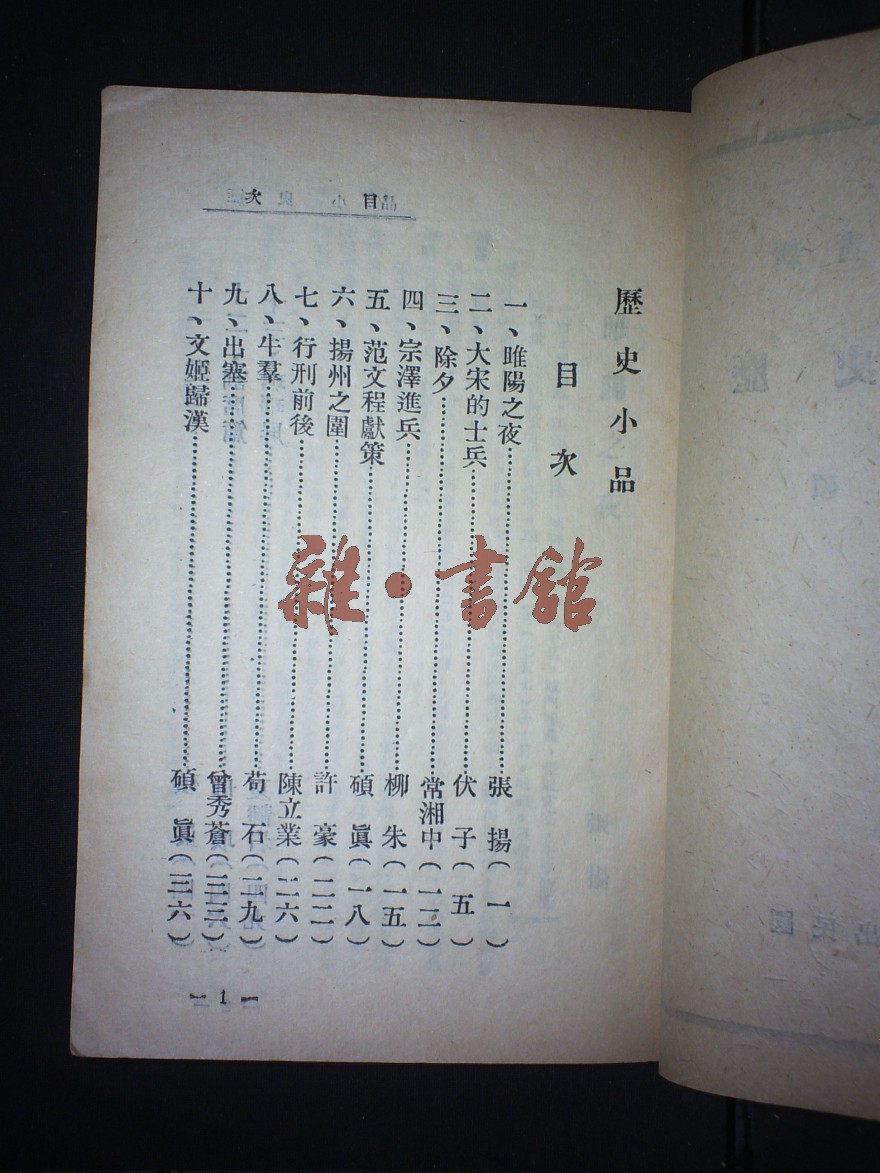 歷史小品
目次
一、睢陽之夜……張揚(一)
二、大宋的士兵……伏子(五)
三、除夕……常湘中(一二)
四、宗澤進兵……柳朱(一五)
五、范文程獻策……碩眞(一八)
六、揚州之圍……許豪(二二)
七、行刑前後……陳立業(二六)
八、牛羣……苟石(二九)
九、出塞……曾秀蒼(三三)
十、文姬歸漢……碩眞(三六)
目次
1
雜·書館